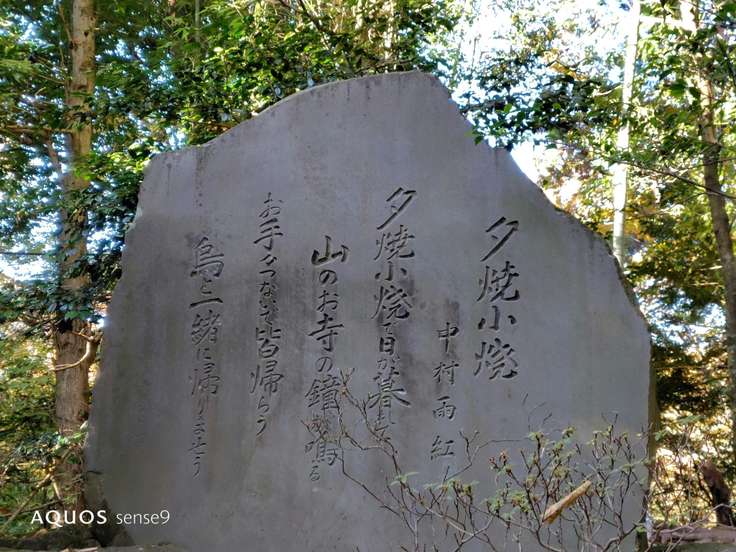 夕焼小焼
中村雨紅
夕焼小焼で日が暮れて
山のお寺の鐘が鳴る
お手々つないで皆帰ろう
烏と一緒に帰りませう
AQUOS sense9